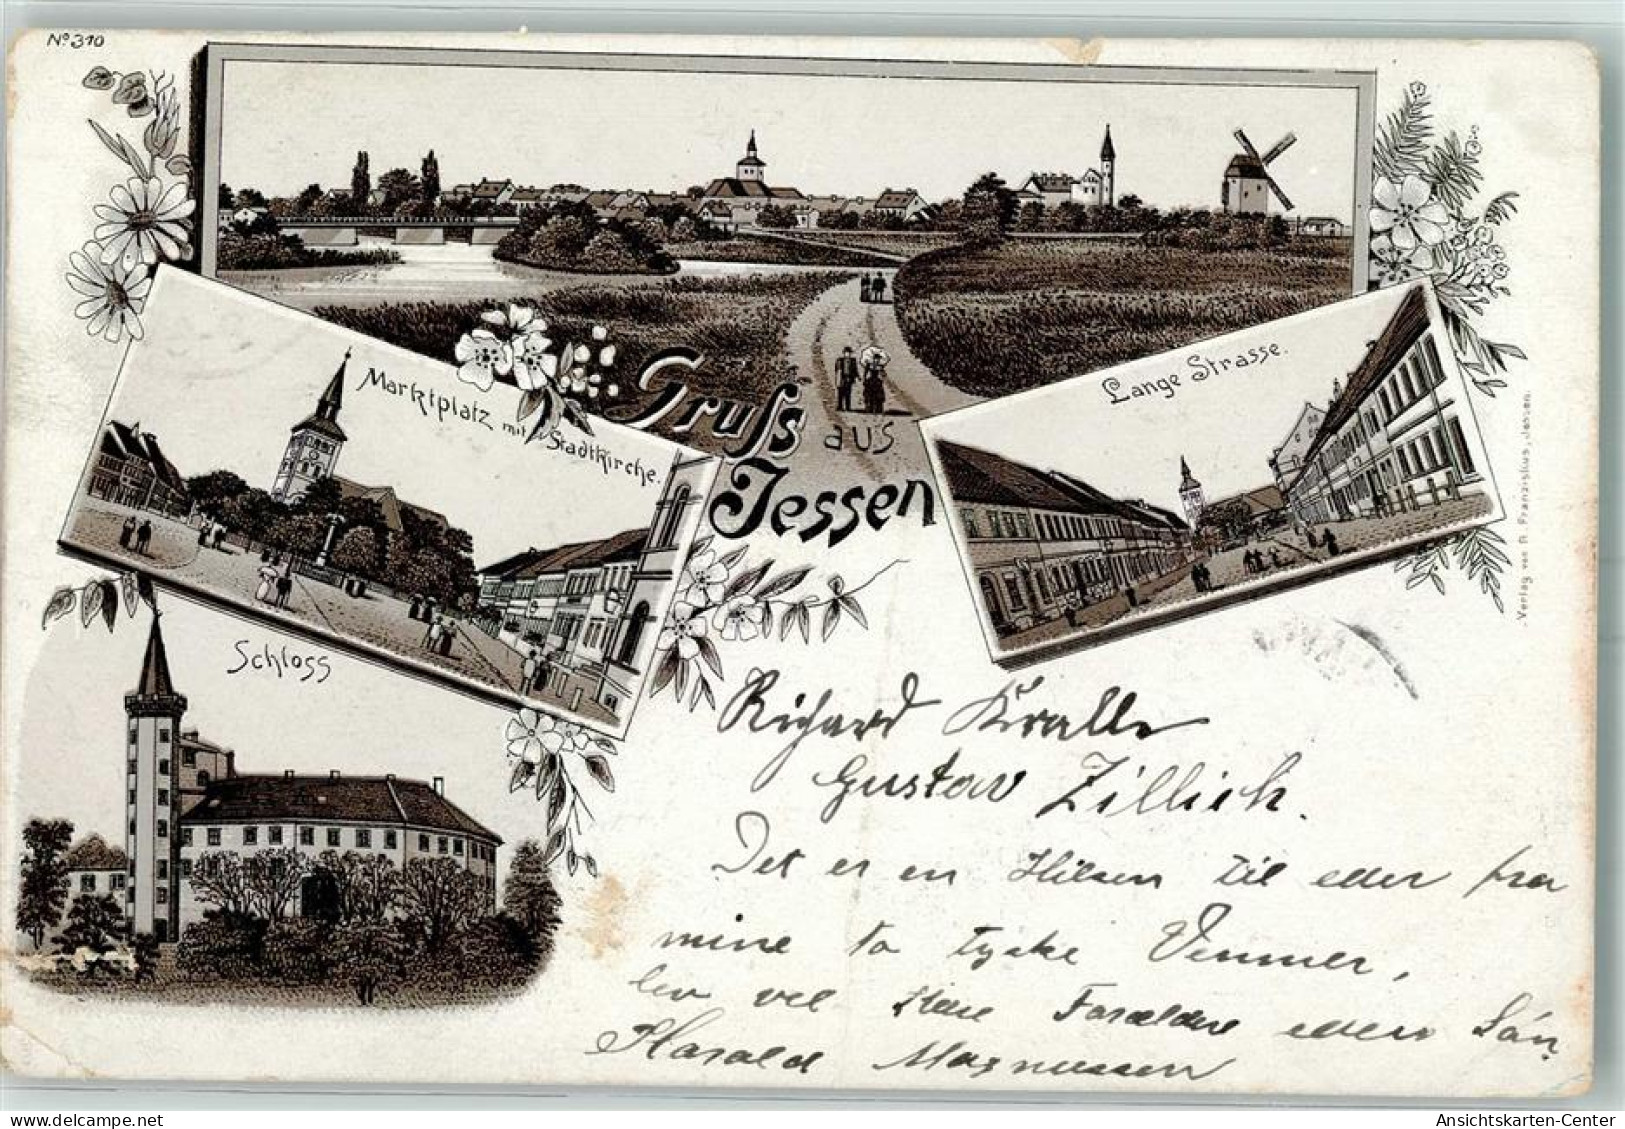 No 310
Gruss aus Jessen
Marktplatz mit Stadtkirche.
Lange Strasse.
Schloss
Verlag von R. Franziskus, Jessen.
Richard Kralle
Gustav Zillich.
Det er en Hilsen til eder fra
mine to tyske Venner,
lev vel kære Forældre eders Søn
Harald Magnussen
Ansichtskarten-Center